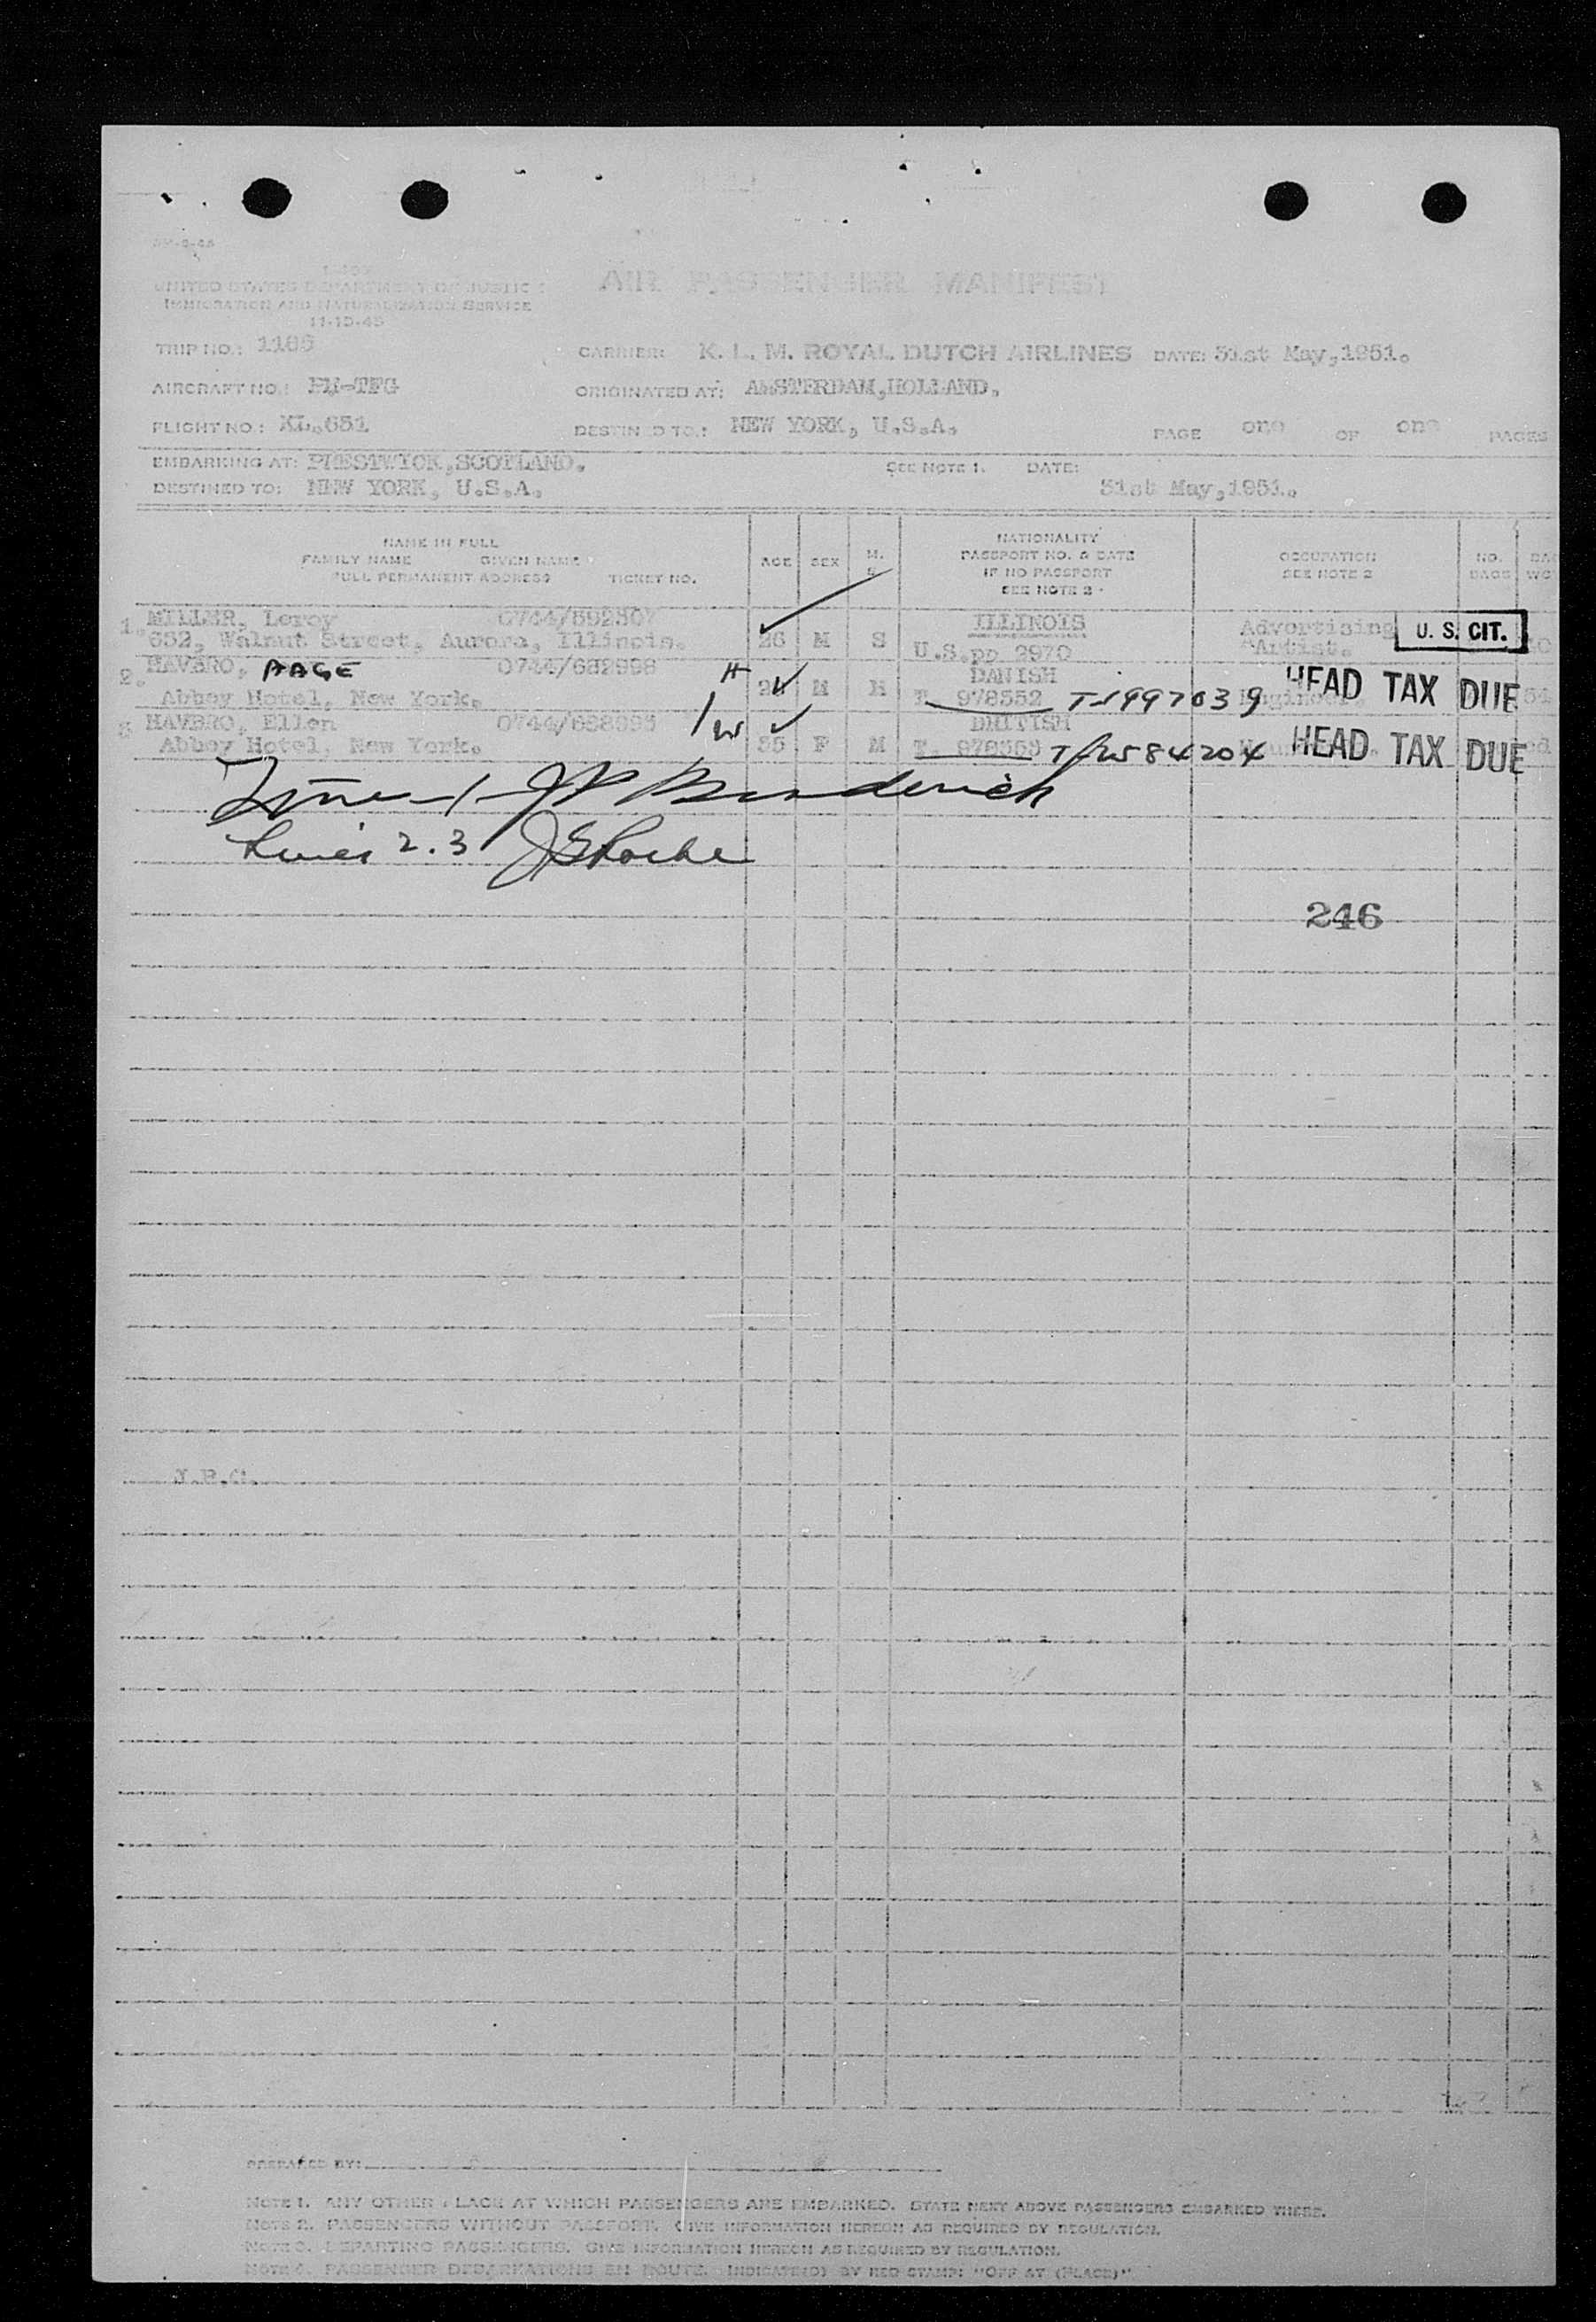 UNITED STATES DEPARTMENT OF JUSTICE
IMMIGRATION AND NATURALIZATION SERVICE
11-15-45
AIR PASSENGER MANIFEST
TRIP NO.: 1185
CARRIER: K. L. M. ROYAL DUTCH AIRLINES DATE: 31st May,1951.
AIRCRAFT NO.: PH-TFG
ORIGINATED AT: AMSTERDAM,HOLLAND.
FLIGHT NO.: KL.651
DESTINED TO.: NEW YORK, U.S.A. PAGE one OF one PAGES
EMBARKING AT: PRESTWICK,SCOTLAND. SEE NOTE 1. DATE:
DESTINED TO: NEW YORK, U.S.A. 31st May,1951.
NAME IN FULL
FAMILY NAME GIVEN NAME
FULL PERMANENT ADDRESS TICKET NO.
AGE SEX M. S
NATIONALITY
PASSPORT NO. & DATE
IF NO PASSPORT
SEE NOTE 2
OCCUPATION
SEE NOTE 2
NO.
BAGS
1. MILLER, Leroy 0744/592307 ILLINOIS Advertising U. S. CIT.
652, Walnut Street, Aurora, Illinois. 26 M S U.S.pp 2970 Artist.
2. HAVBRO, AAGE 0744/682998 H DANISH HEAD TAX DUE
Abbey Hotel, New York. M M T. 978552 T-1997039 Engineer.
3 HAVBRO, Ellen W BRITISH HEAD TAX DUE
Abbey Hotel, New York. 35 F M T. 978553
Line 1 - J P Broderick
Lines 2.3 J G Roche
246
PREPARED BY:
NOTE 1. ANY OTHER PLACE AT WHICH PASSENGERS ARE EMBARKED. STATE NEXT ABOVE PASSENGERS EMBARKED THERE.
NOTE 2. PASSENGERS WITHOUT PASSPORT. GIVE INFORMATION HEREON AS REQUIRED BY REGULATION.
NOTE 3. DEPARTING PASSENGERS. GIVE INFORMATION HEREON AS REQUIRED BY REGULATION.
NOTE 4. PASSENGER DEBARKATIONS EN ROUTE. INDICATE(D) BY RED STAMP: "OFF AT (PLACE)"